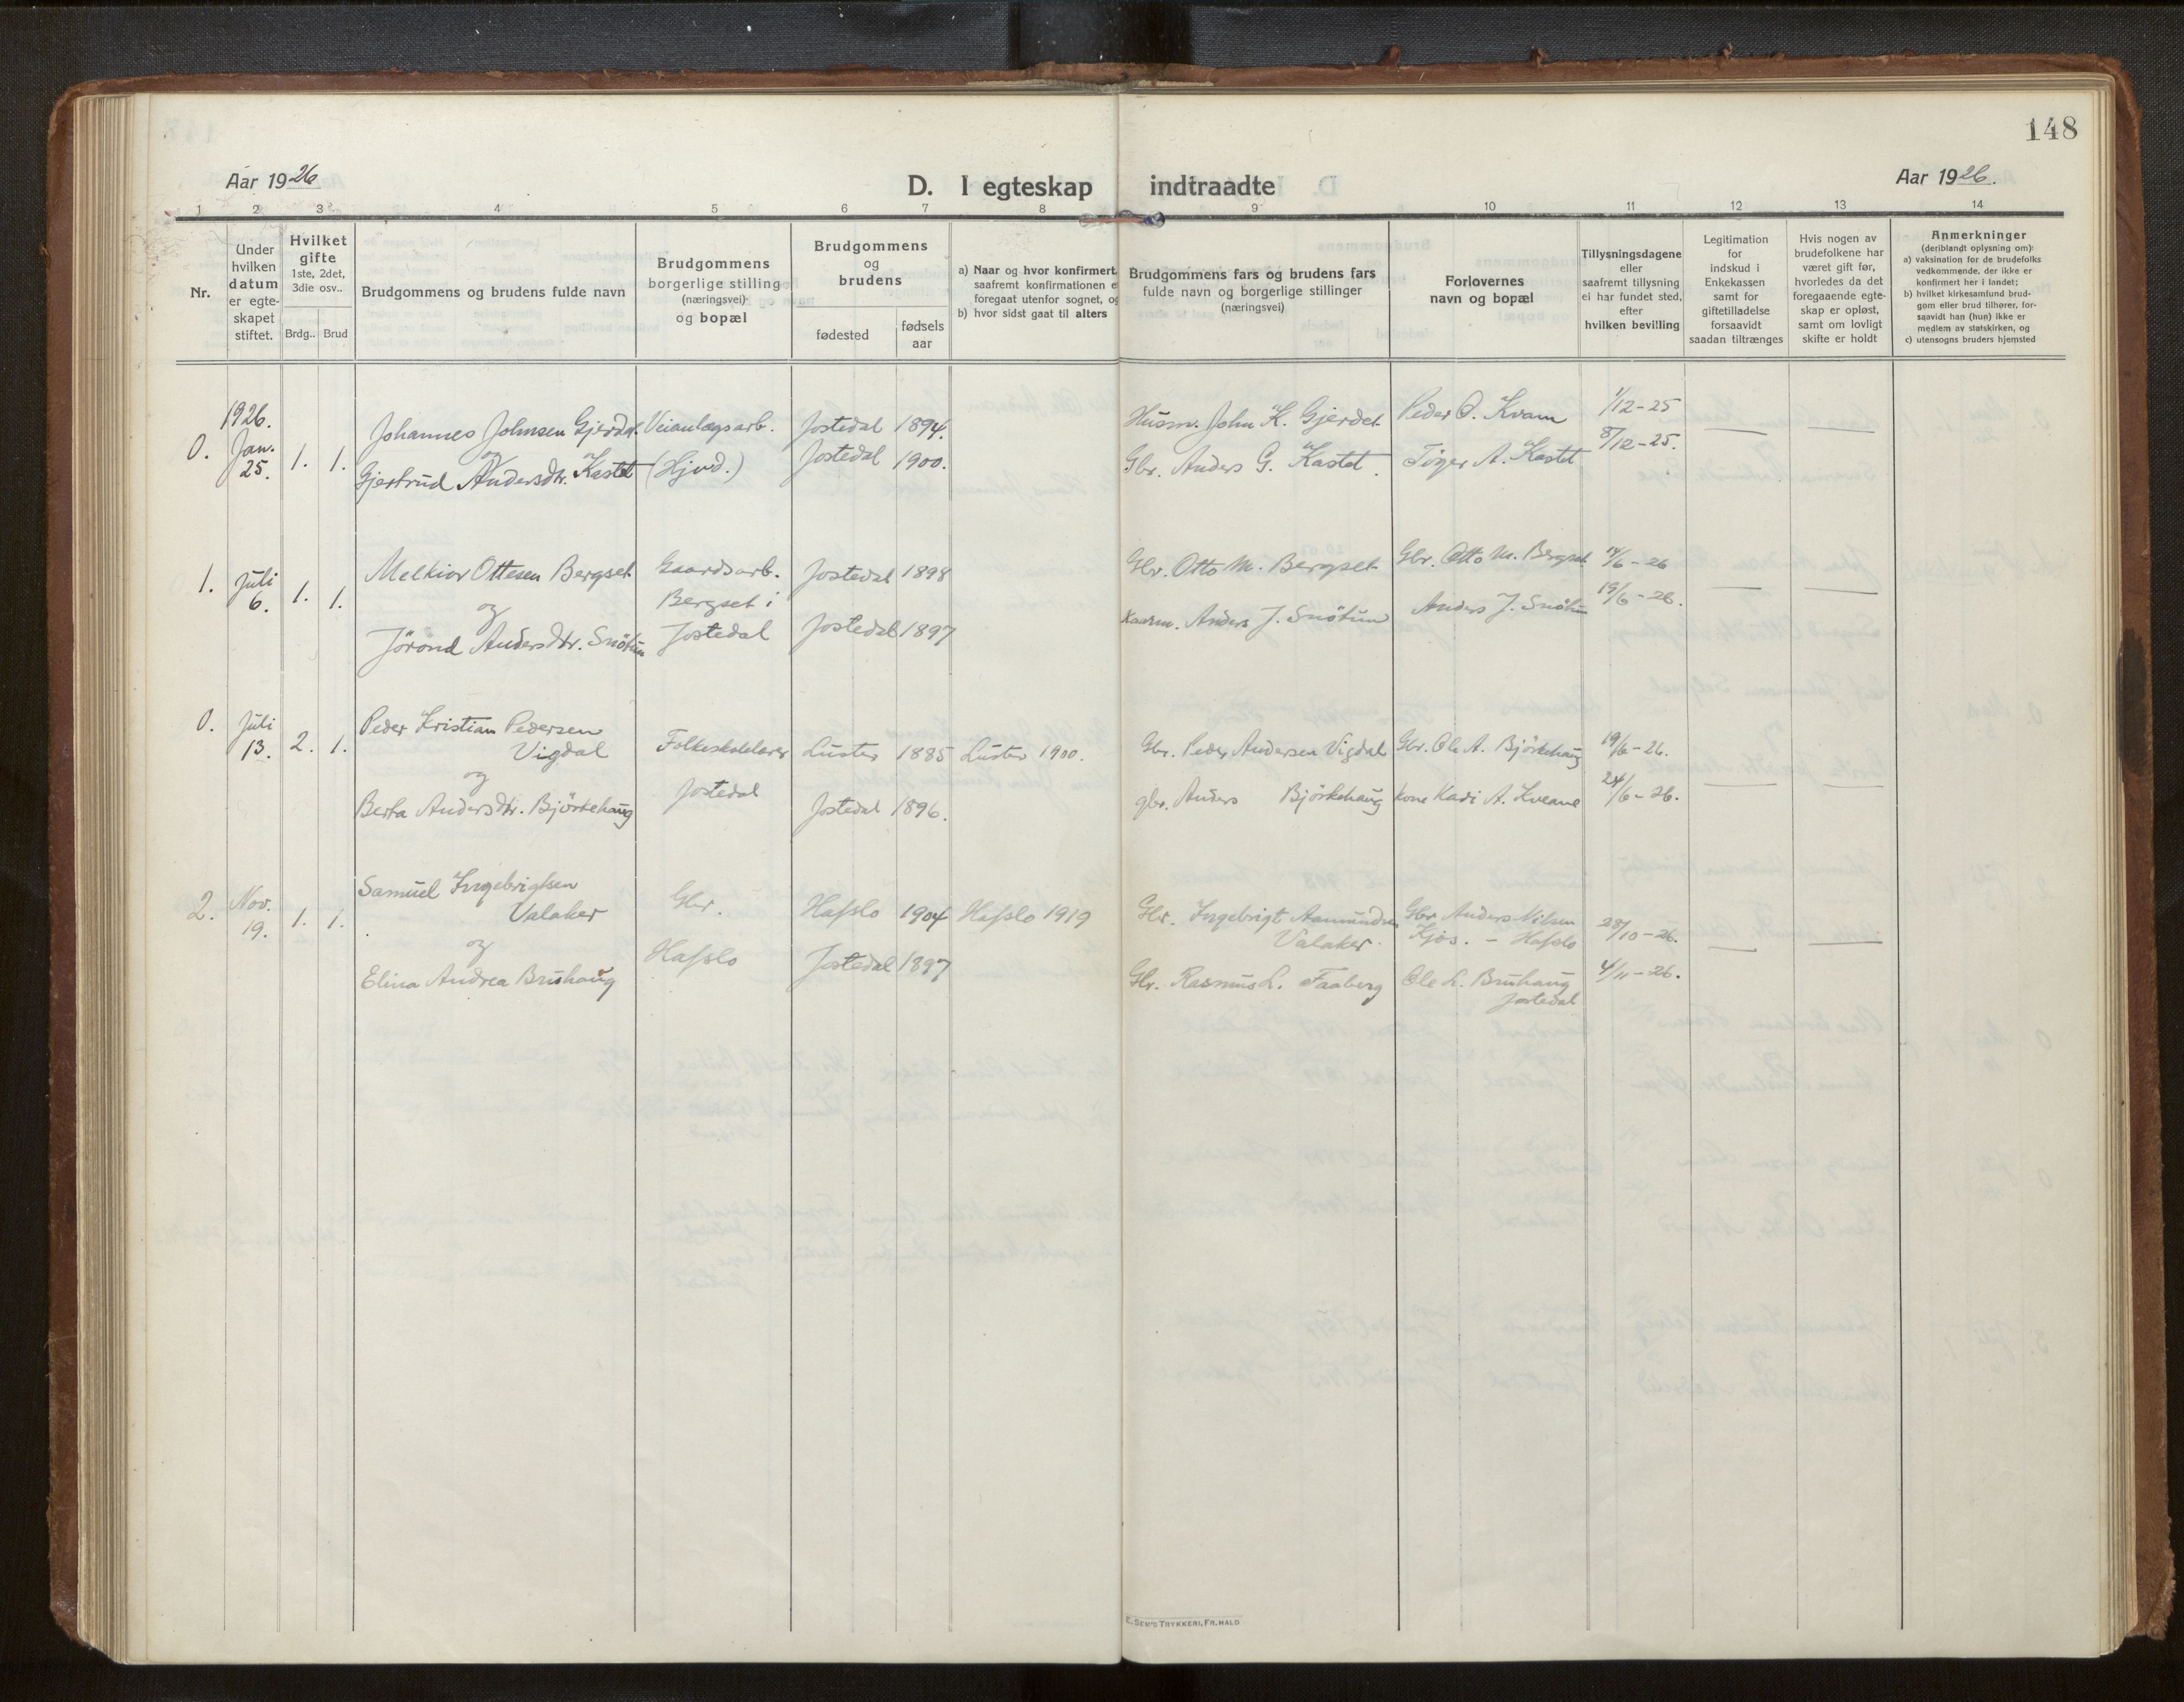 148
Aar 1926
D. I egteskap indtraadte
Aar 1926.
1 2 3 4 5 6 7 8 9 10 11 12 13 14
Nr.
Under hvilken datum er egteskapet stiftet.
Hvilket gifte 1ste, 2det, 3die osv..
Brdg.. Brud
Brudgommens og brudens fulde navn
Brudgommens borgerlige stilling (næringsvei) og bopæl
Brudgommens og brudens
fødested
fødsels aar
a) Naar og hvor konfirmert,
saafremt konfirmationen e
foregaat utenfor sognet, og
b) hvor sidst gaat til alters
Brudgommens fars og brudens fars
fulde navn og borgerlige stillinger
(næringsvei)
Forlovernes
navn og bopæl
Tillysningsdagene
eller
saafremt tillysning
ei har fundet sted,
efter
hvilken bevilling
Legitimation
for
indskud i
Enkekassen
samt for
giftetilladelse
forsaavidt
saadan tiltrænges
Hvis nogen av
brudefolkene har
været gift før,
hvorledes da det
foregaaende egte-
skap er opløst,
samt om lovligt
skifte er holdt
Anmerkninger
(deriblandt oplysning om):
a) vaksination før de brudefolks
vedkommende, der ikke er
konfirmert her i landet;
b) hvilket kirkesamfund brud-
gom eller brud tilhører, for-
saavidt han (hun) ikke er
medlem av statskirken, og
c) utensogns bruders hjemsted
1926.
0. Jan. 25. 1. 1.
Johannes Johnsen Gjerdet. Veianlægsarb. Jostedal 1894.
og
Gjertrud Andersdtr. Kastet (Hjvd.) Jostedal 1900.
Husm. John K. Gjerdet Peder O. Kvam 1/12-25
Gbr. Anders G. Kastet. Töger A. Kastet 8/12-25.
1. Juli 6. 1. 1.
Melkior Ottesen Bergset Gaardsarb. Jostedal 1898
og Bergset i
Jörond Andersdtr. Snötun Jostedal Jostedal 1897
Gbr. Otto M. Bergset Gbr. Otto M. Bergset 14/6-26
Kaarm. Anders J. Snötun Anders J. Snötun 19/6-26.
0. Juli 13. 2. 1.
Peder Kristian Pedersen
Vigdal Folkeskolelærer Luster 1885 Luster 1900.
og Jostedal
Berta Andersdtr. Björkehaug Jostedal 1896.
Gbr. Peder Andersen Vigdal Gbr. Ole A. Björkehaug 19/6-26.
gbr. Anders Björkehaug kone Kadi A. Kveane 24/6-26.
2. Nov. 19. 1. 1.
Samuel Ingebrigtsen
Valaker Gbr. Hafslo 1904 Hafslo 1919
og Hafslo
Elina Andrea Bruhaug Jostedal 1897
Gbr. Ingebrigt Aamundsen
Valaker.
Gbr Anders Nilsen
Kjos. - Hafslo 28/10-26.
Gbr. Rasmus L. Faaberg Ole L. Bruhaug
Jostedal 4/11-26.
E. SEM'S TRYKKERI, FR. HALD